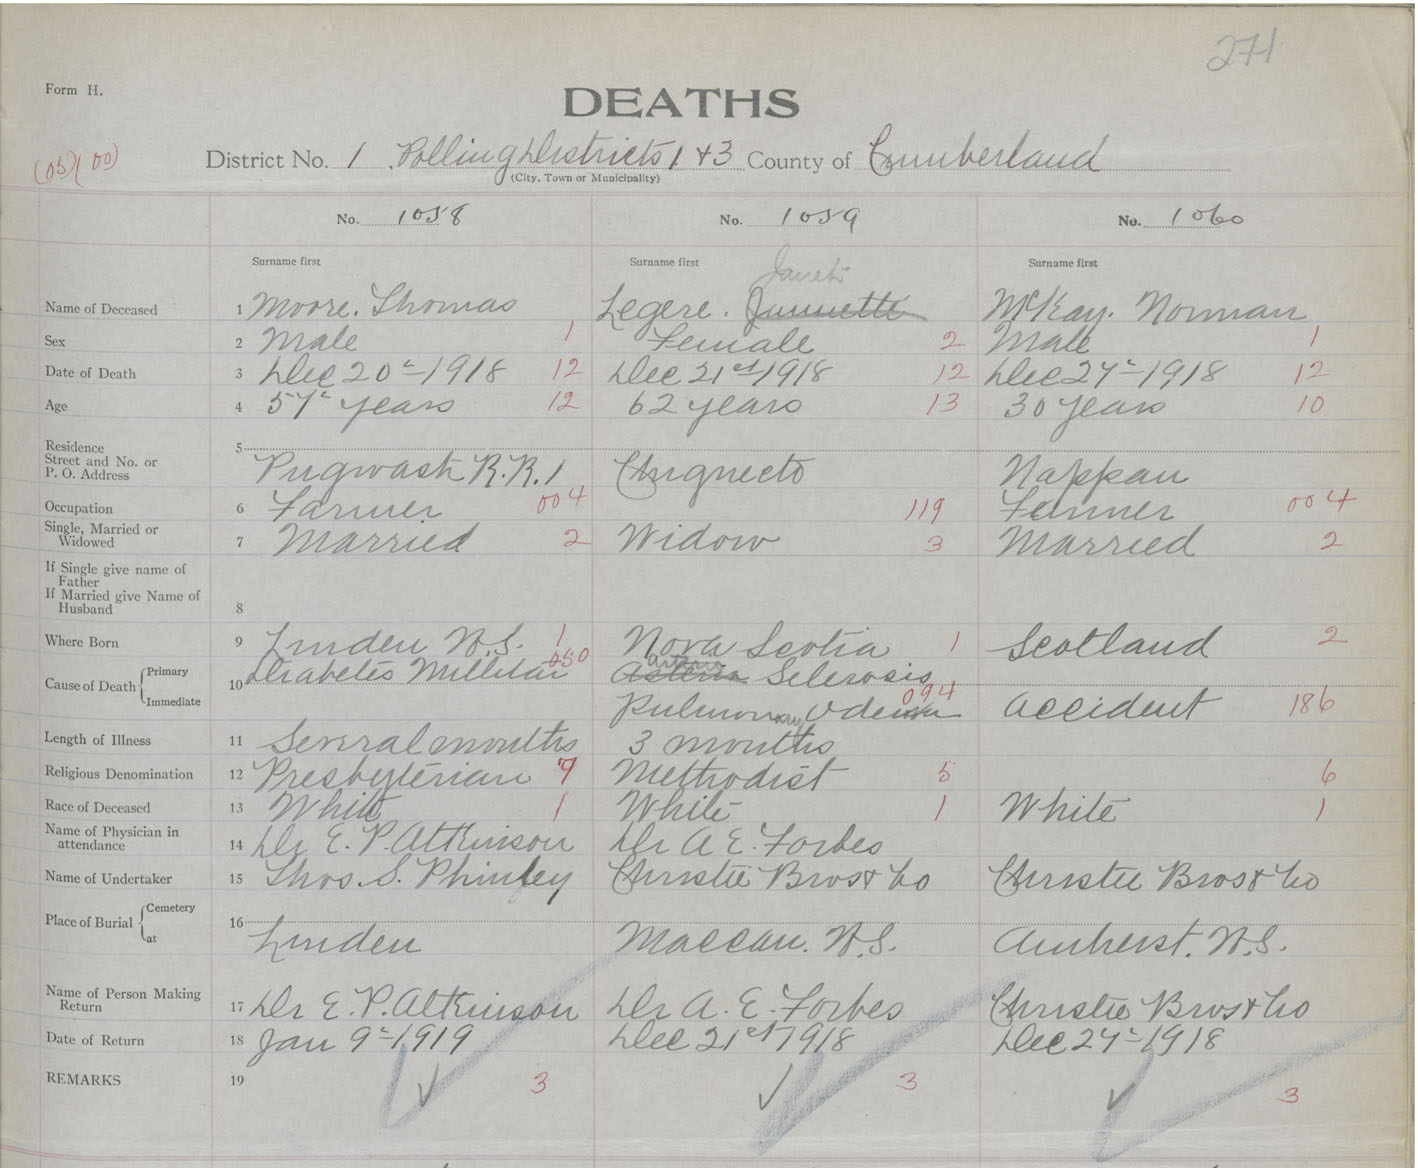 271
Form H.
DEATHS
(05)(00)
District No. 1 Polling Districts 1 & 3 County of Cumberland
(City, Town or Municipality)
No. 1058 No. 1059 No. 1060
Surname first Surname first Janet Surname first
Name of Deceased 1 Moore. Thomas Legere. Jannette McKay. Norman
Sex 2 Male 1 Female 2 Male 1
Date of Death 3 Dec 20th 1918 12 Dec 21st 1918 12 Dec 24th 1918 12
Age 4 57 years 12 62 years 13 30 years 10
Residence 5
Street and No. or
P. O. Address Pugwash R.R. 1 Chignecto Nappan
Occupation 6 Farmer 004 119 Farmer 004
Single, Married or
Widowed 7 Married 2 Widow 3 Married 2
If Single give name of
Father
If Married give Name of
Husband 8
Where Born 9 Linden N.S. 1 Nova Scotia 1 Scotland 2
Cause of Death Primary 10 Diabetes Millitus 050 Arterio Sclerosis
Immediate Pulmonary Odema 094 Accident 186
Length of Illness 11 Several months 3 months
Religious Denomination 12 Presbyterian 7 Methodist 5 6
Race of Deceased 13 White 1 White 1 White 1
Name of Physician in
attendance 14 Dr E. P. Atkinson Dr A E. Forbes
Name of Undertaker 15 Thos. S. Phinley Christie Bros & Co Christie Bros & Co
Place of Burial Cemetery 16
at Linden Maccan. N.S. Amherst. N.S.
Name of Person Making
Return 17 Dr E. P. Atkinson Dr A. E. Forbes Christie Bros & Co
Date of Return 18 Jan 9th 1919 Dec 21st 1918 Dec 24th 1918
REMARKS 19 3 3 3